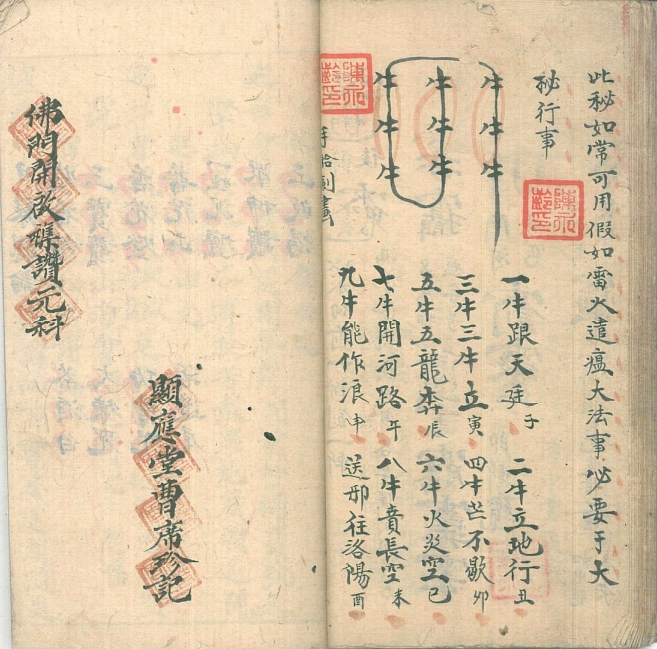 此秘如常可用假如雷火遣瘟大法事必要于大
秘行事
牛牛牛
牛牛牛
牛牛牛
一牛跟天廷子 二牛立地行丑
三牛三牛立寅 四牛芒不歇卯
五牛五龍奔辰 六牛火炎空巳
七牛開河路午 八牛賁長空未
九牛能作浪申 送邪往洛陽酉
佛門開啟

讚元科
顯應堂曹席珍記